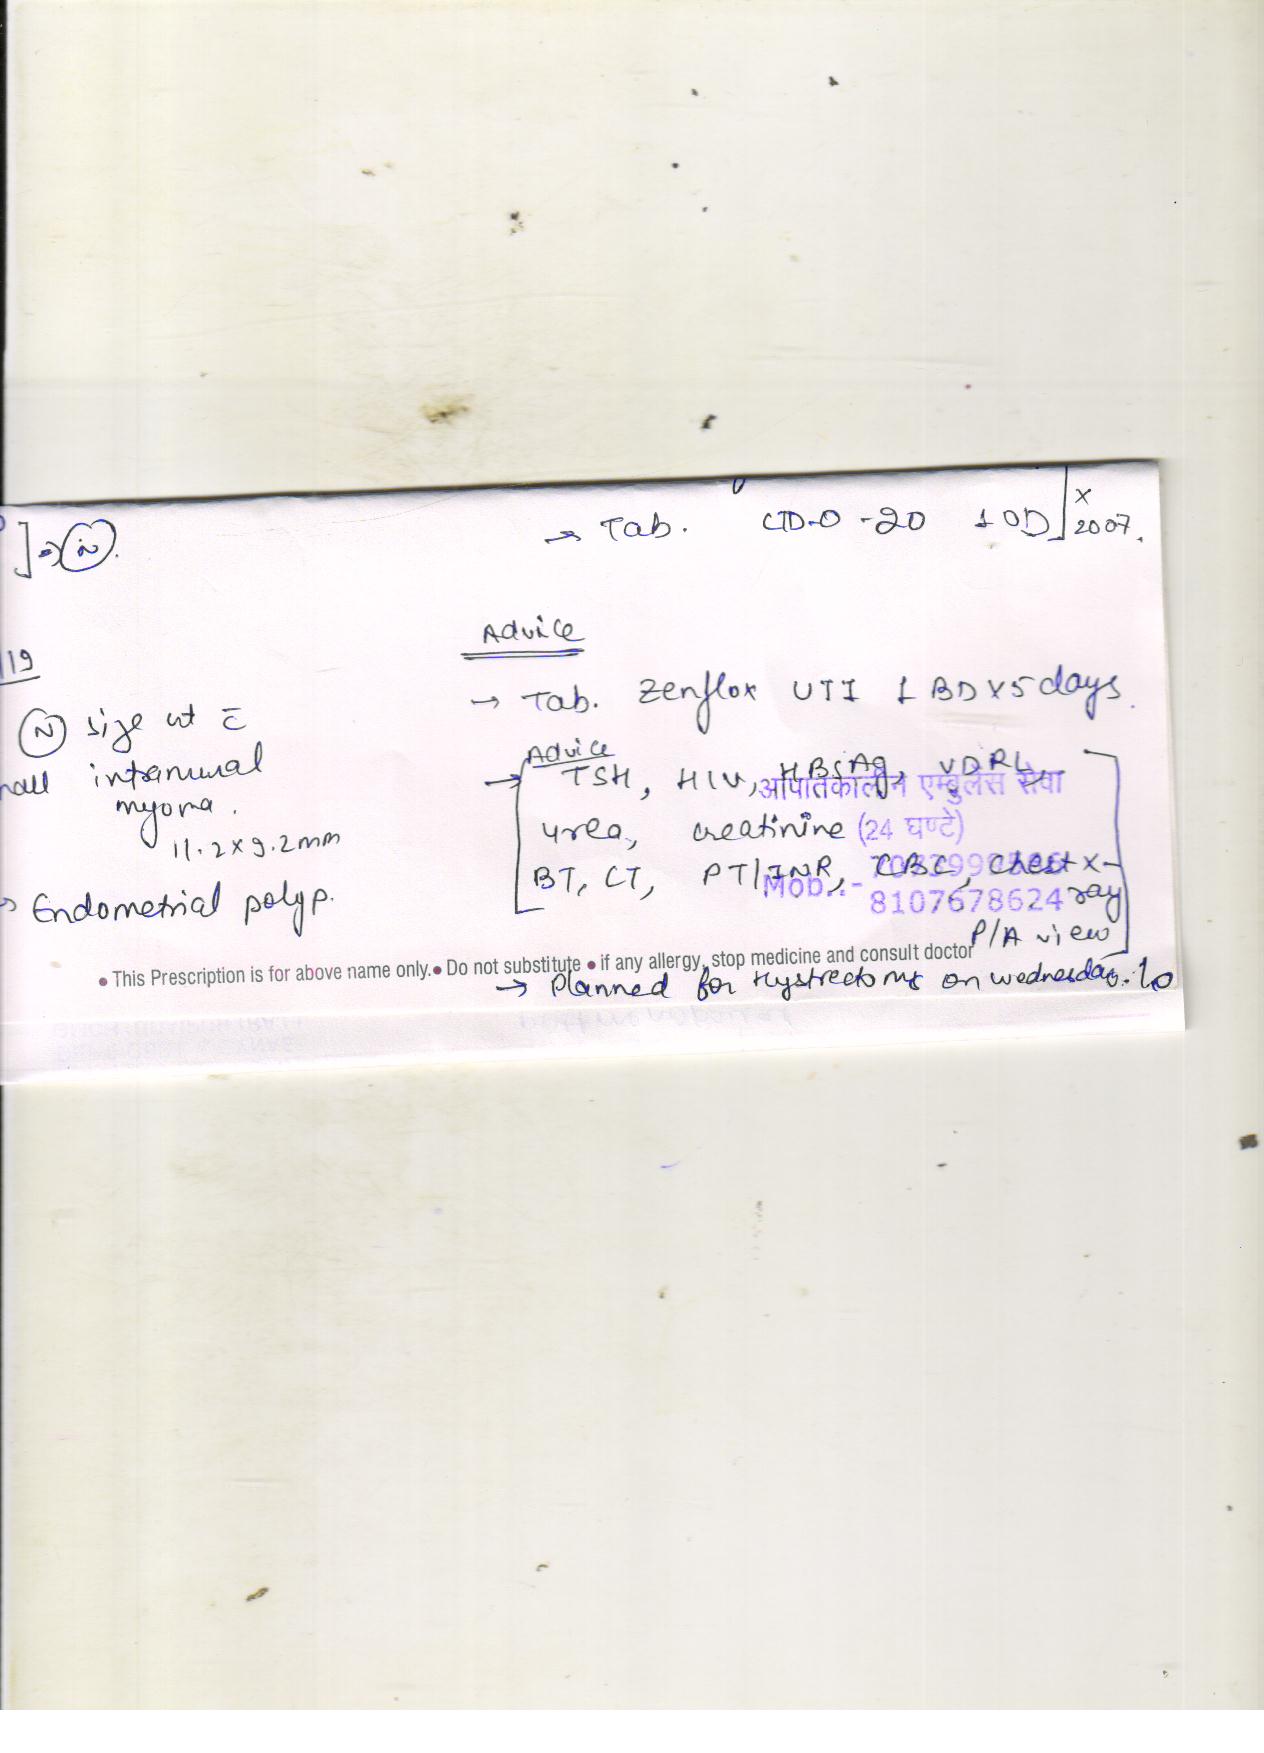 ] → (N).
→ Tab. CTD-O-20 1 OD] x
2007.
Advice
/19
→ Tab. Zenflox UTI 1 BD x 5 days.
(N) size ut c̄
intramural
myoma.
11.2 x 9.2 mm
→ Endometrial polyp.
Advice
→ [TSH, HIV, HBSAg, VDRL,
urea, creatinine
BT, CT, PT/INR, CBC, Chest X-
ray
P/A view]
आपातकालीन एम्बुलेंस सेवा
(24 घण्टे)
Mob.:-
8107678624
• This Prescription is for above name only. • Do not substitute • if any allergy, stop medicine and consult doctor
→ Planned for Hystrectomy on wednesday.